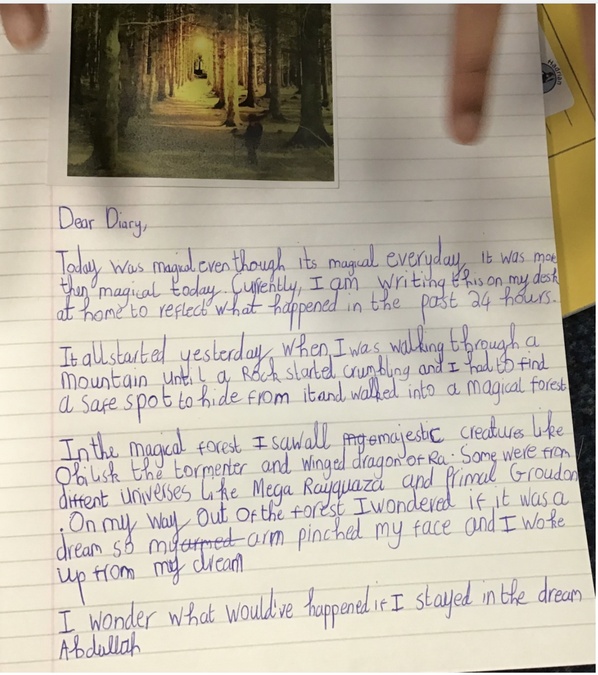 Dear Diary,
Today was magical even though its magical everyday, It was more
then magical today. Currently, I am writing this on my desk
at home to reflect what happened in the past 24 hours.
It all started yesterday when I was walking through a
mountain until a Rock started crumbling and I had to find
a safe spot to hide from it and walked into a magical forest
In the magical forest I saw all majestic creatures like
Obilisk the tormenter and winged dragon of Ra. Some were from
diffent universes like Mega Rayquaza and Primal Groudon
. On my way out of the forest I wondered if it was a
dream so my armed arm pinched my face and I woke
up from my dream
I wonder what would've happened if I stayed in the dream
Abdullah